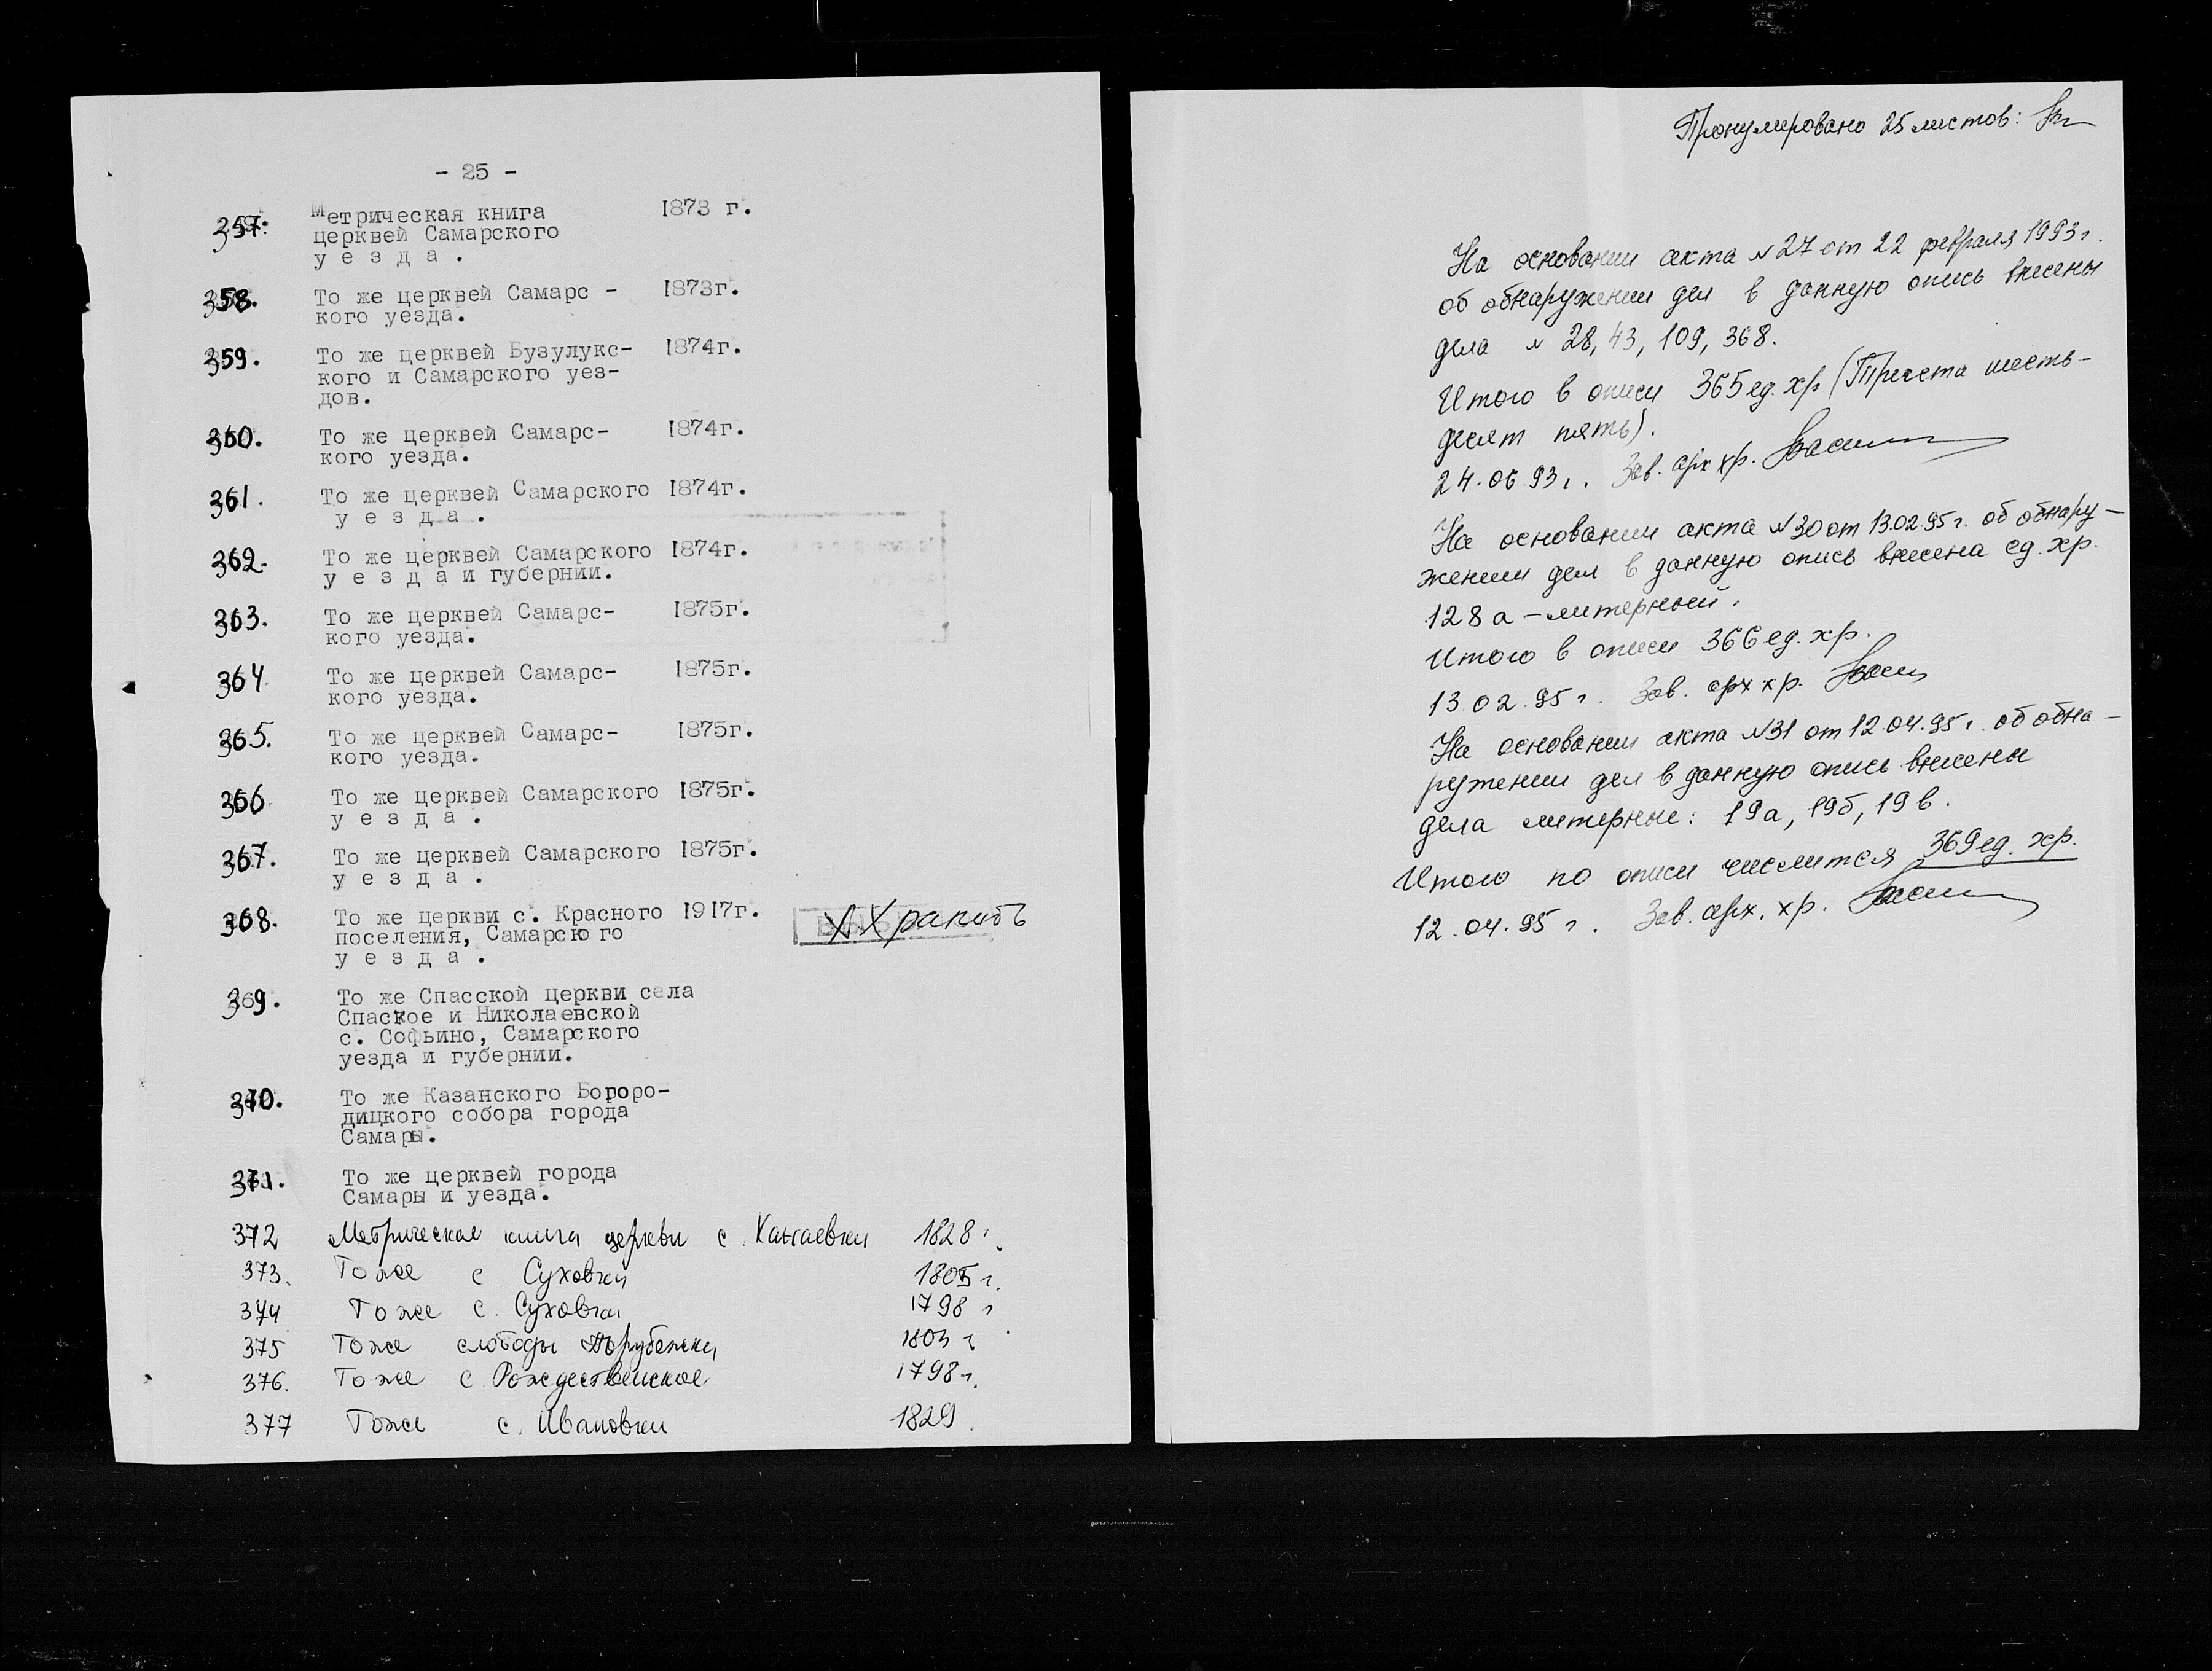 - 25 -
357. Метрическая книга 1873 г.
церквей Самарского
у е з д а .
358. То же церквей Самарс - 1873г.
кого уезда.
359. То же церквей Бузулукс- 1874г.
кого и Самарского уез-
дов.
360. То же церквей Самарс- 1874г.
кого уезда.
361. То же церквей Самарского 1874г.
у е з д а .
362. То же церквей Самарского 1874г.
у е з д а и губернии.
363. То же церквей Самарс- 1875г.
кого уезда.
364 То же церквей Самарс- 1875г.
кого уезда.
365. То же церквей Самарс- 1875г.
кого уезда.
366 То же церквей Самарского 1875г.
у е з д а .
367. То же церквей Самарского 1875г.
у е з д а .
368. То же церкви с. Красного 1917г. Хранить
поселения, Самарского
у е з д а .
369. То же Спасской церкви села
Спаское и Николаевской
с. Софьино, Самарского
уезда и губернии.
370. То же Казанского Богоро-
дицкого собора города
Самары.
371. То же церквей города
Самары и уезда.
372 Метрическая книга церкви с. 1828 г.
373. То же с Суховки 1805 г.
374 То же с. Суховки 1798 г
375 То же слободы 1803 г
376. То же с. Рождественское 1798 г.
377 То же с. Ивановки 1829.
Пронумировано 25 листов:
На основании акта N 27 от 22 февраля 1993 г.
об обнаружении дел в данную опись внесены
дела N 28, 43, 109, 368.
Итого в описи 365 ед. хр (Триста шесть-
десят пять).
24.06.93 г. Зав. арх хр.
На основании акта N 30 от 13.02.95 г. об обнару-
жении дел в данную опись внесена ед. хр.
128 а - литерный.
Итого в описи 366 ед. хр.
13.02.95 г. Зав. арх хр.
На основании акта N31 от 12.04.95 г. об обна-
ружении дел в данную опись внесены
дела литерные: 19а, 19б, 19в.
Итого по описи числится 369 ед. хр.
12.04.95 г. Зав. арх. хр.